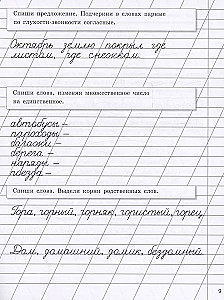 Спиши предложение. Подчеркни в словах парные
по глухости-звонкости согласные.
Октябрь землю покрыл где
листом, где снежком.
Спиши слова, изменяя множественное число
на единственное.
автобусы –
пароходы –
барашки –
берега –
наряды –
поезда –
Спиши слова. Выдели корни родственных слов.
Гора, горный, горняк, гористый, горец.
Дом, домашний, домик, бездомный.
9